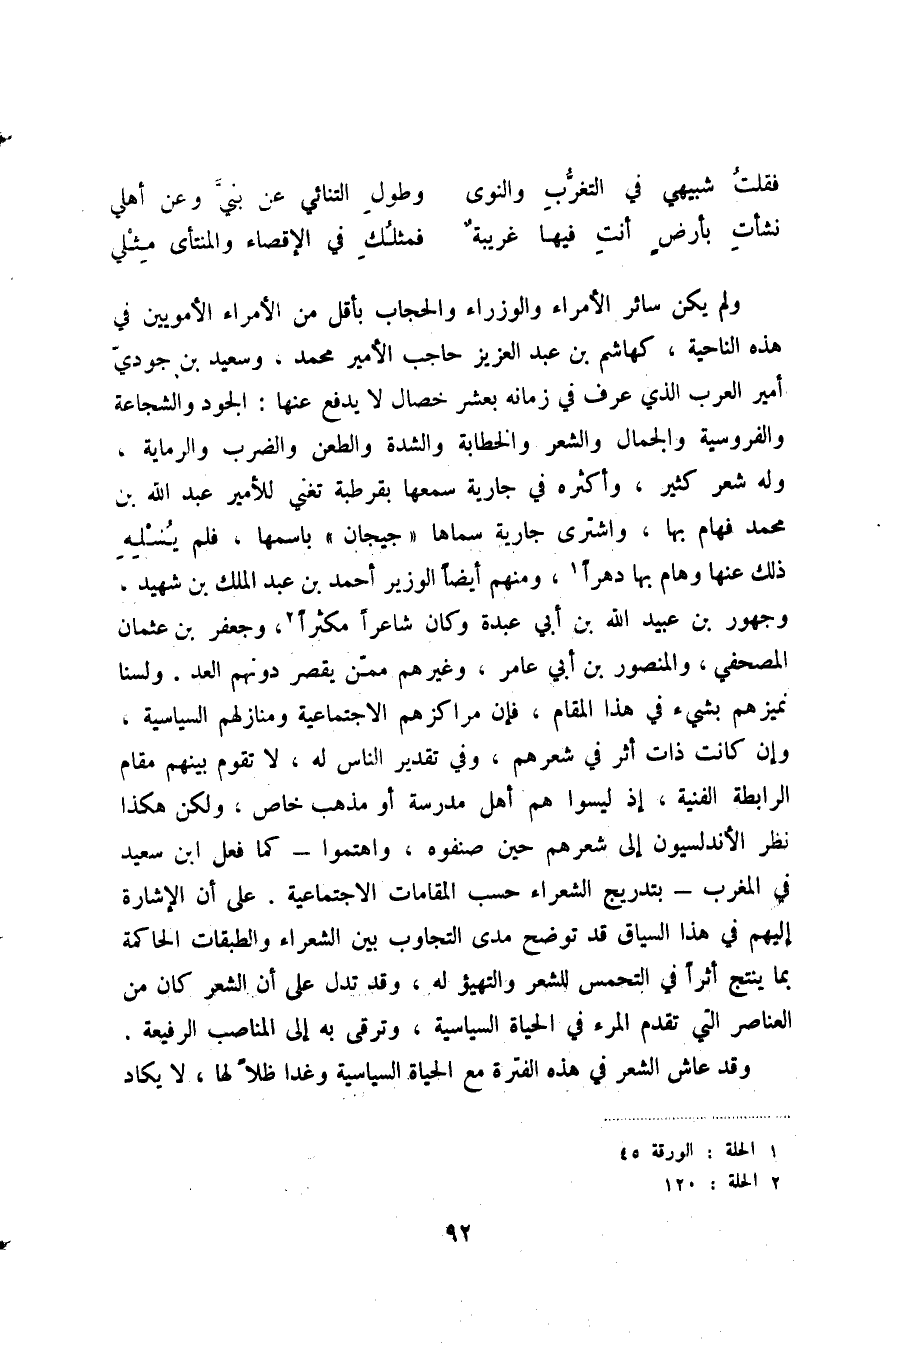 فقلتُ شبيهي في التغرُّبِ والنوى وطولِ التنائي عن بنيَّ وعن أهلي
نشأتِ بأرضٍ أنتِ فيها غريبةٌ فمثلُكِ في الإقصاء والمنتأى مِثْلي
ولم يكن سائر الأمراء والوزراء والحجاب بأقل من الأمراء الأمويين في
هذه الناحية ، كهاشم بن عبد العزيز حاجب الأمير محمد . وسعيد بن جوديّ
أمير العرب الذي عرف في زمانه بعشر خصال لا يدفع عنها : الجود والشجاعة
والفروسية والجمال والشعر والخطابة والشدة والطعن والضرب والرماية ،
وله شعر كثير ، وأكثره في جارية سمعها بقرطبة تغني للأمير عبد الله بن
محمد فهام بها ، واشترى جارية سماها « جيجان » باسمها ، فلم يُسْلِيهِ
ذلك عنها وهام بها دهراً١ ، ومنهم أيضاً الوزير أحمد بن عبد الملك بن شهيد .
وجهور بن عبيد الله بن أبي عبدة وكان شاعراً مكثراً٢، وجعفر بن عثمان
المصحفي ، والمنصور بن أبي عامر ، وغيرهم ممّن يقصر دونهم العد . ولسنا
نميزهم بشيء في هذا المقام ، فإن مراكزهم الاجتماعية ومنازلهم السياسية ،
وإن كانت ذات أثر في شعرهم ، وفي تقدير الناس له ، لا تقوم بينهم مقام
الرابطة الفنية ، إذ ليسوا هم أهل مدرسة أو مذهب خاص ، ولكن هكذا
نظر الأندلسيون إلى شعرهم حين صنفوه ، واهتموا – كما فعل ابن سعيد
في المغرب – بتدريج الشعراء حسب المقامات الاجتماعية . على أن الإشارة
إليهم في هذا السياق قد توضح مدى التجاوب بين الشعراء والطبقات الحاكمة
بما ينتج أثراً في التحمس للشعر والتهيؤ له ، وقد تدل على أن الشعر كان من
العناصر التي تقدم المرء في الحياة السياسية ، وترقى به إلى المناصب الرفيعة .
وقد عاش الشعر في هذه الفترة مع الحياة السياسية وغدا ظلاًّ لها ، لا يكاد
١ الحلة : الورقة ٤٥
٢ الحلة : ١٢٠
٩٢